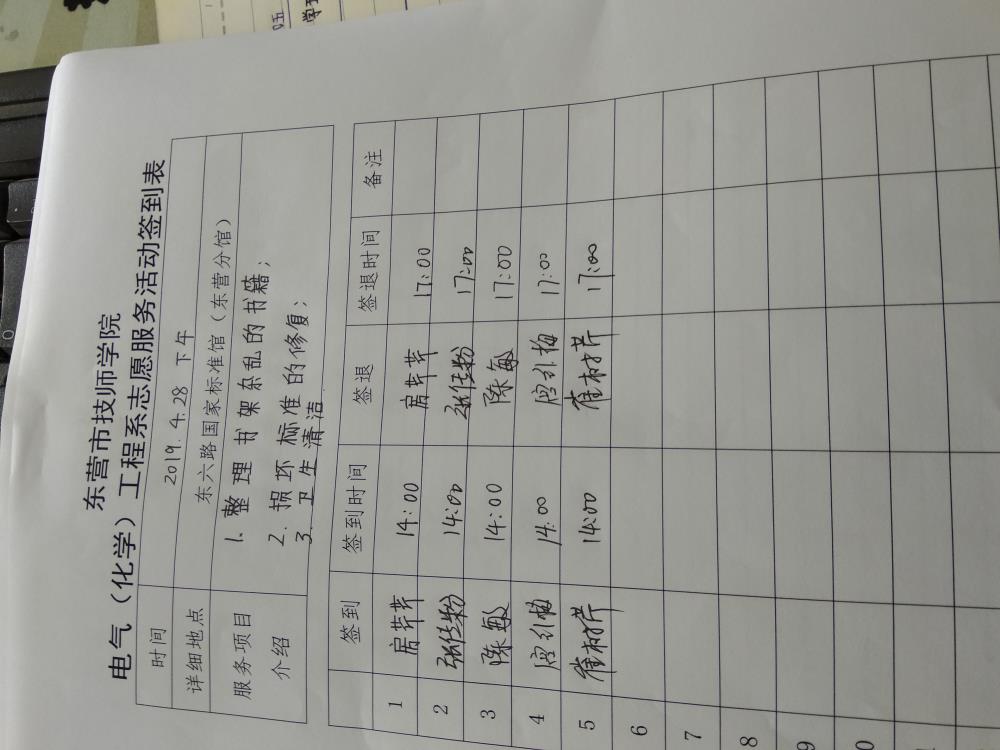 东营市技师学院
电气（化学）工程系志愿服务活动签到表
时间 2019. 4. 28 下午
详细地点 东六路国家标准馆（东营分馆）
服务项目介绍
1. 整理书架杂乱的书籍；
2. 损坏标准的修复；
3. 卫生清洁
签到 签到时间 签退 签退时间 备注
1 房芊芊 14:00 房芊芊 17:00
2 14:00 17:00
3 陈敏 14:00 陈敏 17:00
4 14:00 17:00
5 14:00 17:00
6
7
8
9